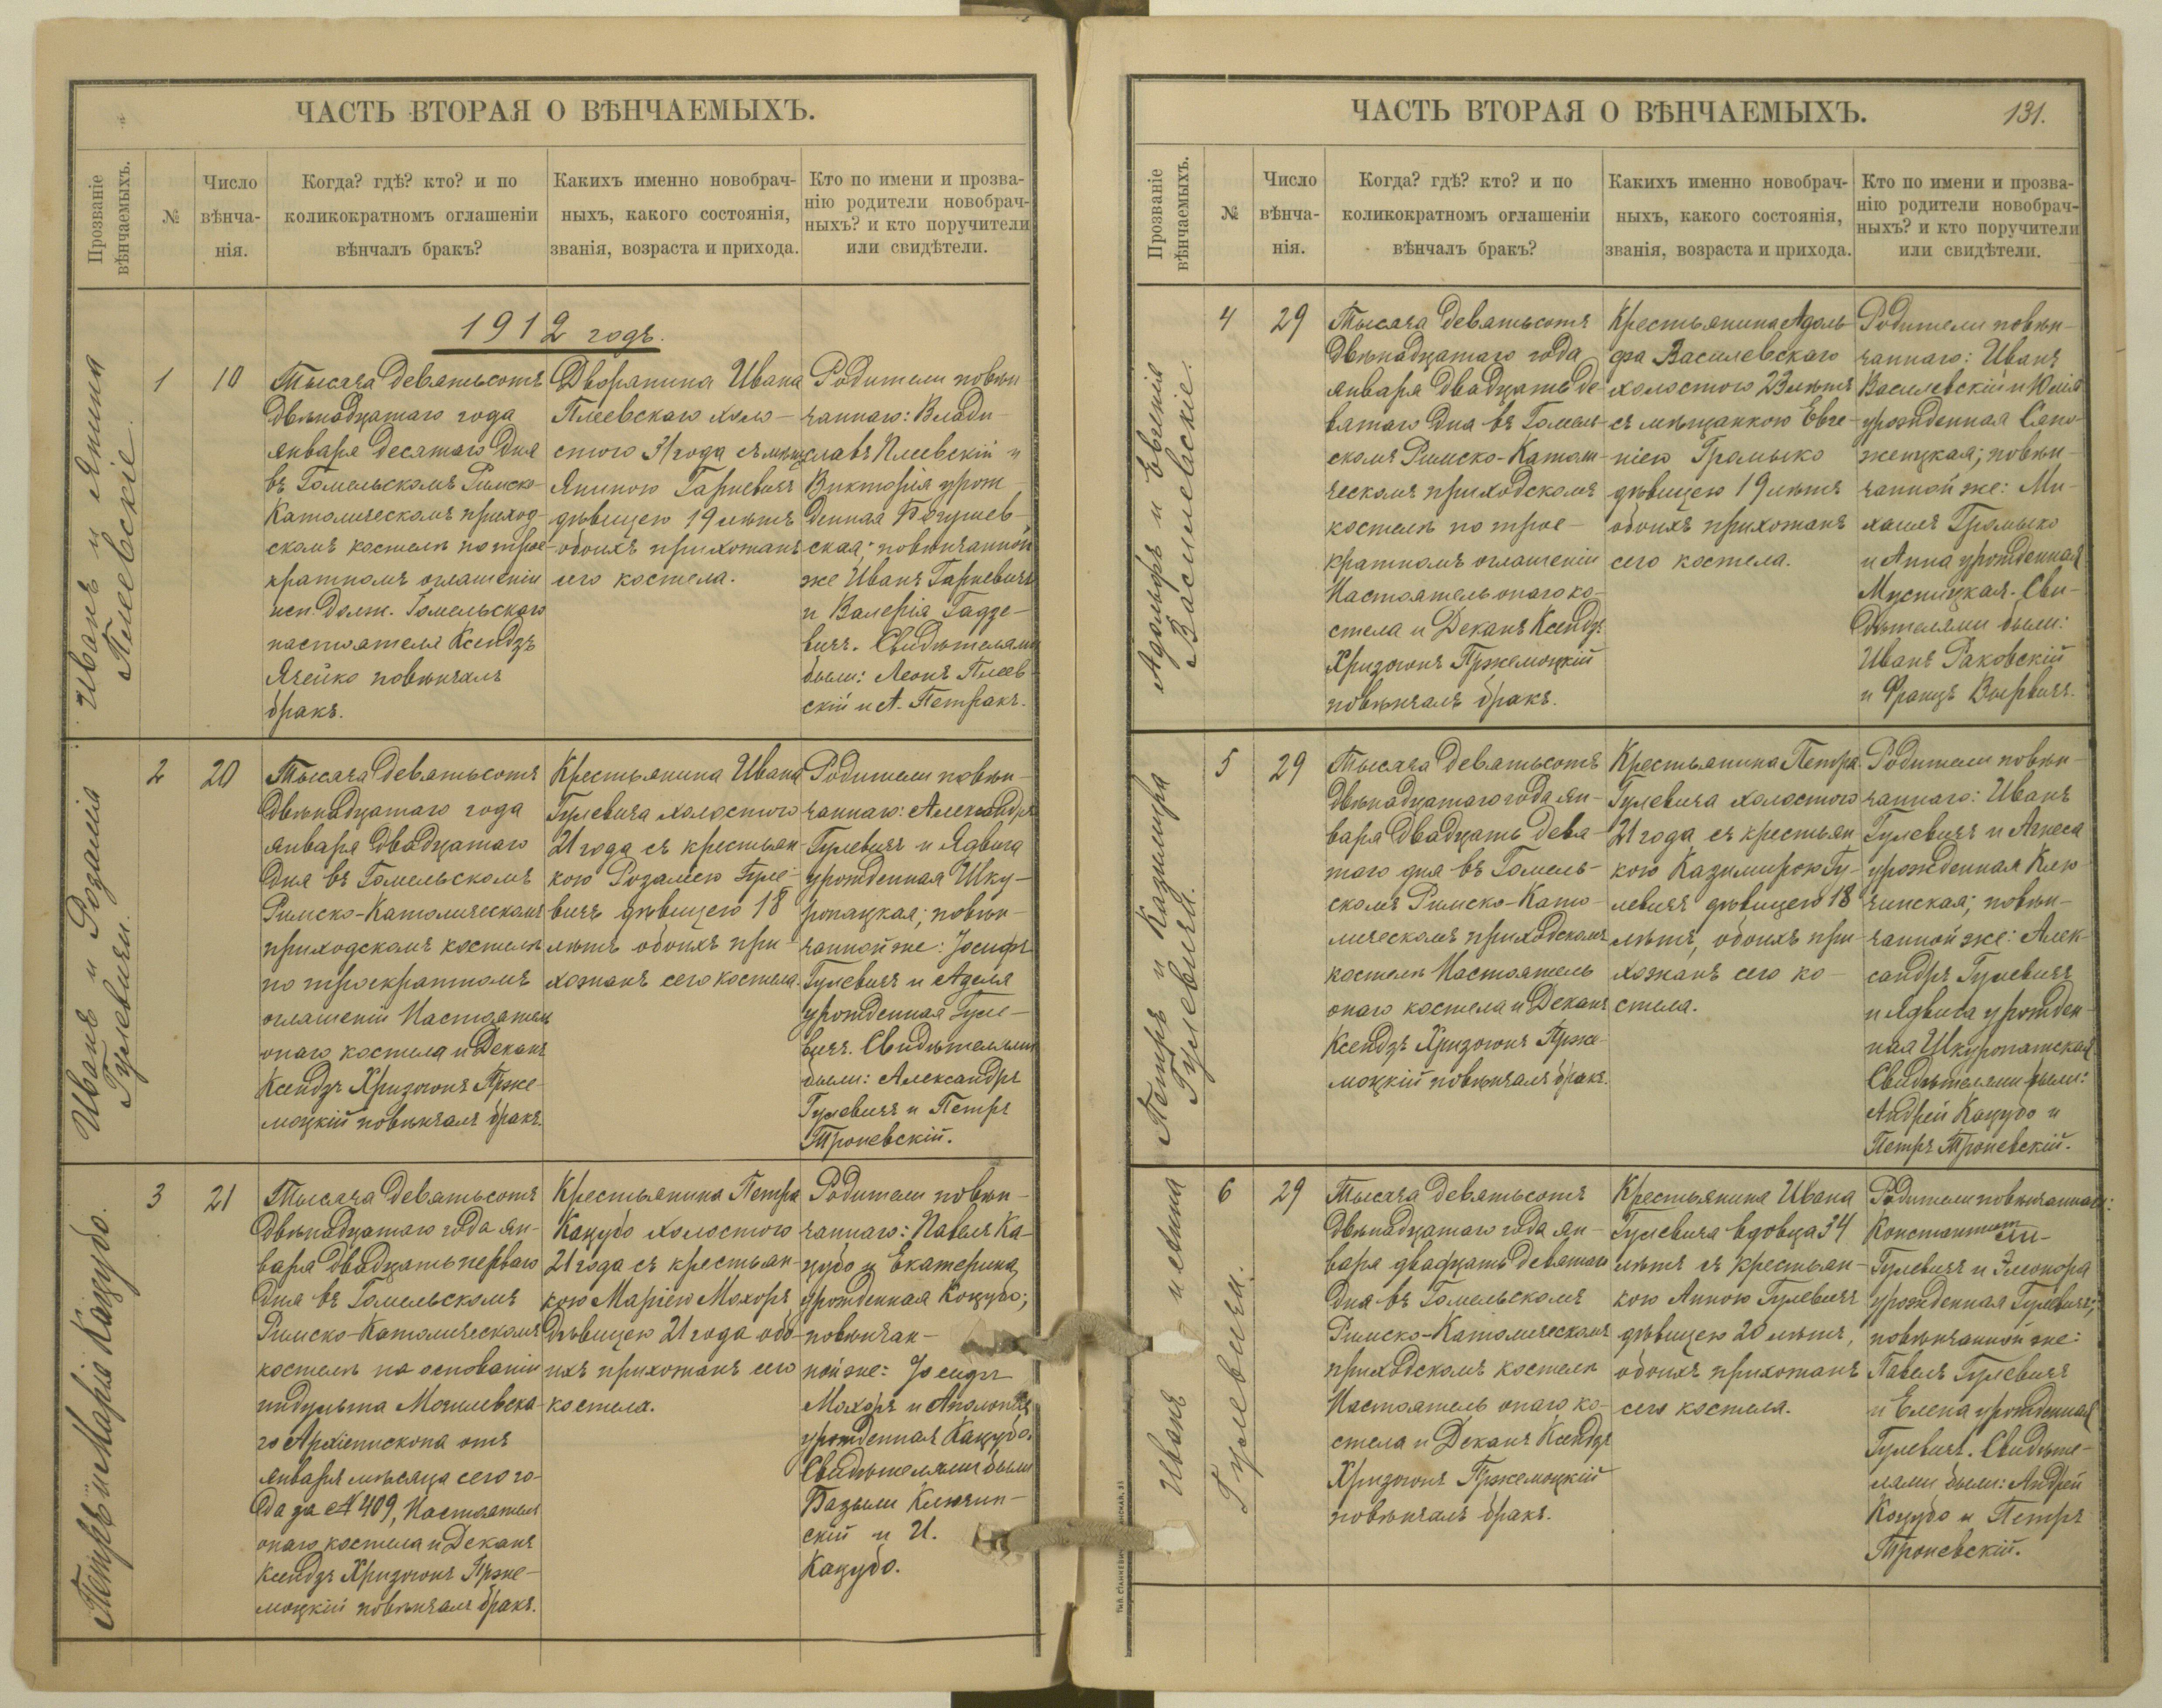 ЧАСТЬ ВТОРАЯ О ВѢНЧАЕМЫХЪ.
Прозваніе
вѣнчаемыхъ.
№
Число
вѣнча-
нія.
Когда? гдѣ? кто? и по
коликократномъ оглашеніи
вѣнчалъ бракъ?
Какихъ именно новобрач-
ныхъ, какого состоянія,
званія, возраста и прихода.
Кто по имени и прозва-
нію родители новобрач-
ныхъ? и кто поручители
или свидѣтели.
1912 годъ.
Иванъ и Янина
Плевскіе.
1
10
Тысяча девятьсотъ
двѣнадцатаго года
января десятаго дня
въ Гомельскомъ Римско-
Католическомъ приход-
скомъ костелѣ по трое-
кратномъ оглашеніи
исп. долж. Гомельскаго
настоятеля Ксендзъ
Ячейко повѣнчалъ
бракъ.
Дворянина Ивана
Плевскаго холо-
стого 31 года съ мѣщ.
Яниною Гарневичъ
дѣвицею 19 лѣтъ
обоихъ прихожанъ
сего костела.
Родители повѣн-
чаннаго: Влади-
славъ Плевскій и
Викторія урож
денная Богушев-
ская; повѣнчанной
же Иванъ Гарневичъ
и Валерія Гадзе-
вичъ. Свидѣтелями
были: Леонъ Плев
скій и А. Петракъ.
Иванъ и Розалія
Гулевичи.
2
20
Тысяча девятьсотъ
двѣнадцатаго года
января двадцатаго
дня въ Гомельскомъ
Римско-Католическомъ
приходскомъ костелѣ
по троекратномъ
оглашеніи Настоятель
онаго костела и Деканъ
Ксендзъ Хризогонъ Прже-
моцкій повѣнчалъ бракъ.
Крестьянина Ивана
Гулевича холостого
21 года съ крестьян-
кою Розаліею Гуле-
вичъ дѣвицею 18
лѣтъ обоихъ при-
хожанъ сего костела.
Родители повѣн-
чаннаго: Александръ
Гулевичъ и Ядвига
урожденная Шку-
ропацкая; повѣн-
чанной же: Іосифъ
Гулевичъ и Аделя
урожденная Гуле-
вичъ. Свидѣтелями
были: Александръ
Гулевичъ и Петръ
Троневскій.
Петръ и Марія Кацубо.
3
21
Тысяча девятьсотъ
двѣнадцатаго года ян-
варя двадцать перваго
дня въ Гомельскомъ
Римско-Католическомъ
костелѣ на основаніи
индульта Могилевска-
го Архіепископа отъ
января мѣсяца сего го-
да за № 409, Настоятель
онаго костела и Деканъ
Ксендзъ Хризогонъ Прже-
моцкій повѣнчалъ бракъ.
Крестьянина Петра
Кацубо холостого
21 года съ крестьян-
кою Маріею Мохоръ
дѣвицею 21 года обо-
ихъ прихожанъ сего
костела.
Родители повѣн-
чаннаго: Павелъ Ка-
цубо и Екатерина
урожденная Коцубо;
повѣнчан-
ной же: Іосифъ
Мохоръ и Аполонія
урожденная Кацубо.
Свидѣтелями были
Базыли Ключин-
скій и И.
Кацубо.
ЧАСТЬ ВТОРАЯ О ВѢНЧАЕМЫХЪ.
131.
Прозваніе
вѣнчаемыхъ.
№
Число
вѣнча-
нія.
Когда? гдѣ? кто? и по
коликократномъ оглашеніи
вѣнчалъ бракъ?
Какихъ именно новобрач-
ныхъ, какого состоянія,
званія, возраста и прихода.
Кто по имени и прозва-
нію родители новобрач-
ныхъ? и кто поручители
или свидѣтели.
Адольфъ и Евгенія
Василевскіе.
4
29
Тысяча девятьсотъ
двѣнадцатаго года
января двадцать де-
вятаго дня въ Гомель-
скомъ Римско-Катои-
ческомъ приходскомъ
костелѣ по трое-
кратномъ оглашеніи
Настоятель онаго ко-
стела и Деканъ Ксендзъ
Хризогонъ Пржемоцкій
повѣнчалъ бракъ.
Крестьянина Адоль
фа Василевскаго
холостого 23 лѣтъ
съ мѣщанкою Евге-
ніею Громыко
дѣвицею 19 лѣтъ
обоихъ прихожанъ
сего костела.
Родители повѣн-
чаннаго: Иванъ
Василевскій и Юлія
урожденная Сапо-
жецкая; повѣн-
чанной же: Ми-
хаилъ Громыко
и Анна урожденная
Мустицкая. Сви-
дѣтелями были:
Иванъ Раковскій
и Францъ Вырвичъ.
Петръ и Казимира
Гулевичи.
5
29
Тысяча девятьсотъ
двѣнадцатаго года ян-
варя двадцать девя
таго дня въ Гомель-
скомъ Римско-Като-
лическомъ приходскомъ
костелѣ Настоятель
онаго костела и Деканъ
Ксендзъ Хризогонъ Прже-
моцкій повѣнчалъ бракъ.
Крестьянина Петра
Гулевича холостого
21 года съ крестьян
кою Казимирою Гу-
левичъ дѣвицею 18
лѣтъ, обоихъ при-
хожанъ сего ко-
стела.
Родители повѣн-
чаннаго: Иванъ
Гулевичъ и Агнеса
урожденная Клю
чинская; повѣн-
чанной же: Алек-
сандръ Гулевичъ
и Ядвига урожден-
ная Шкуропатская
Свидѣтелями были:
Андрей Кацубо и
Петръ Троневскій.
Иванъ и Анна
Гулевичи.
6
29
Тысяча девятьсотъ
двѣнадцатаго года ян-
варя двадцать девятаго
дня въ Гомельскомъ
Римско-Католическомъ
приходскомъ костелѣ
Настоятель онаго ко-
стела и Деканъ Ксендзъ
Хризогонъ Пржемоцкій
повѣнчалъ бракъ.
Крестьянина Ивана
Гулевича вдовца 34
лѣтъ съ крестьян-
кою Анною Гулевичъ
дѣвицею 20 лѣтъ,
обоихъ прихожанъ
сего костела.
Родители повѣнчаннаго:
Константин
Гулевичъ и Элеонора
урожденная Гулевичъ;
повѣнчанной же:
Павелъ Гулевичъ
и Елена урожденная
Гулевичъ. Свидѣте-
лями были: Андрей
Коцубо и Петръ
Троневскій.